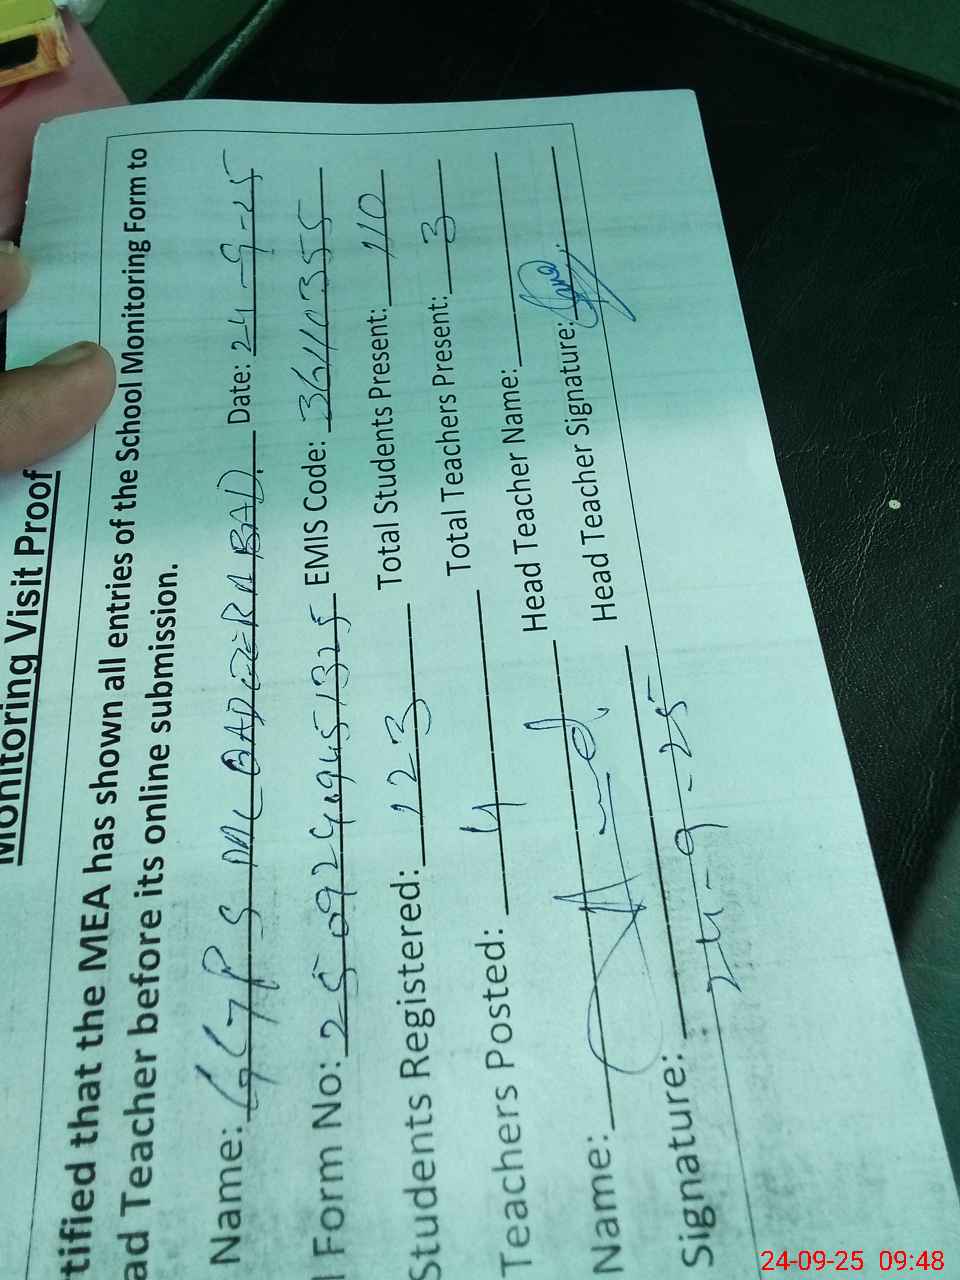 Monitoring Visit Proof
tified that the MEA has shown all entries of the School Monitoring Form to
ad Teacher before its online submission.
Name: GGPS MC Date: 24-9-25
Form No: EMIS Code: 36410355
Students Registered: 123 Total Students Present: 110
Teachers Posted: 4 Total Teachers Present: 3
Name: Head Teacher Name:
Signature: Head Teacher Signature:
24-9-25
24-09-25 09:48